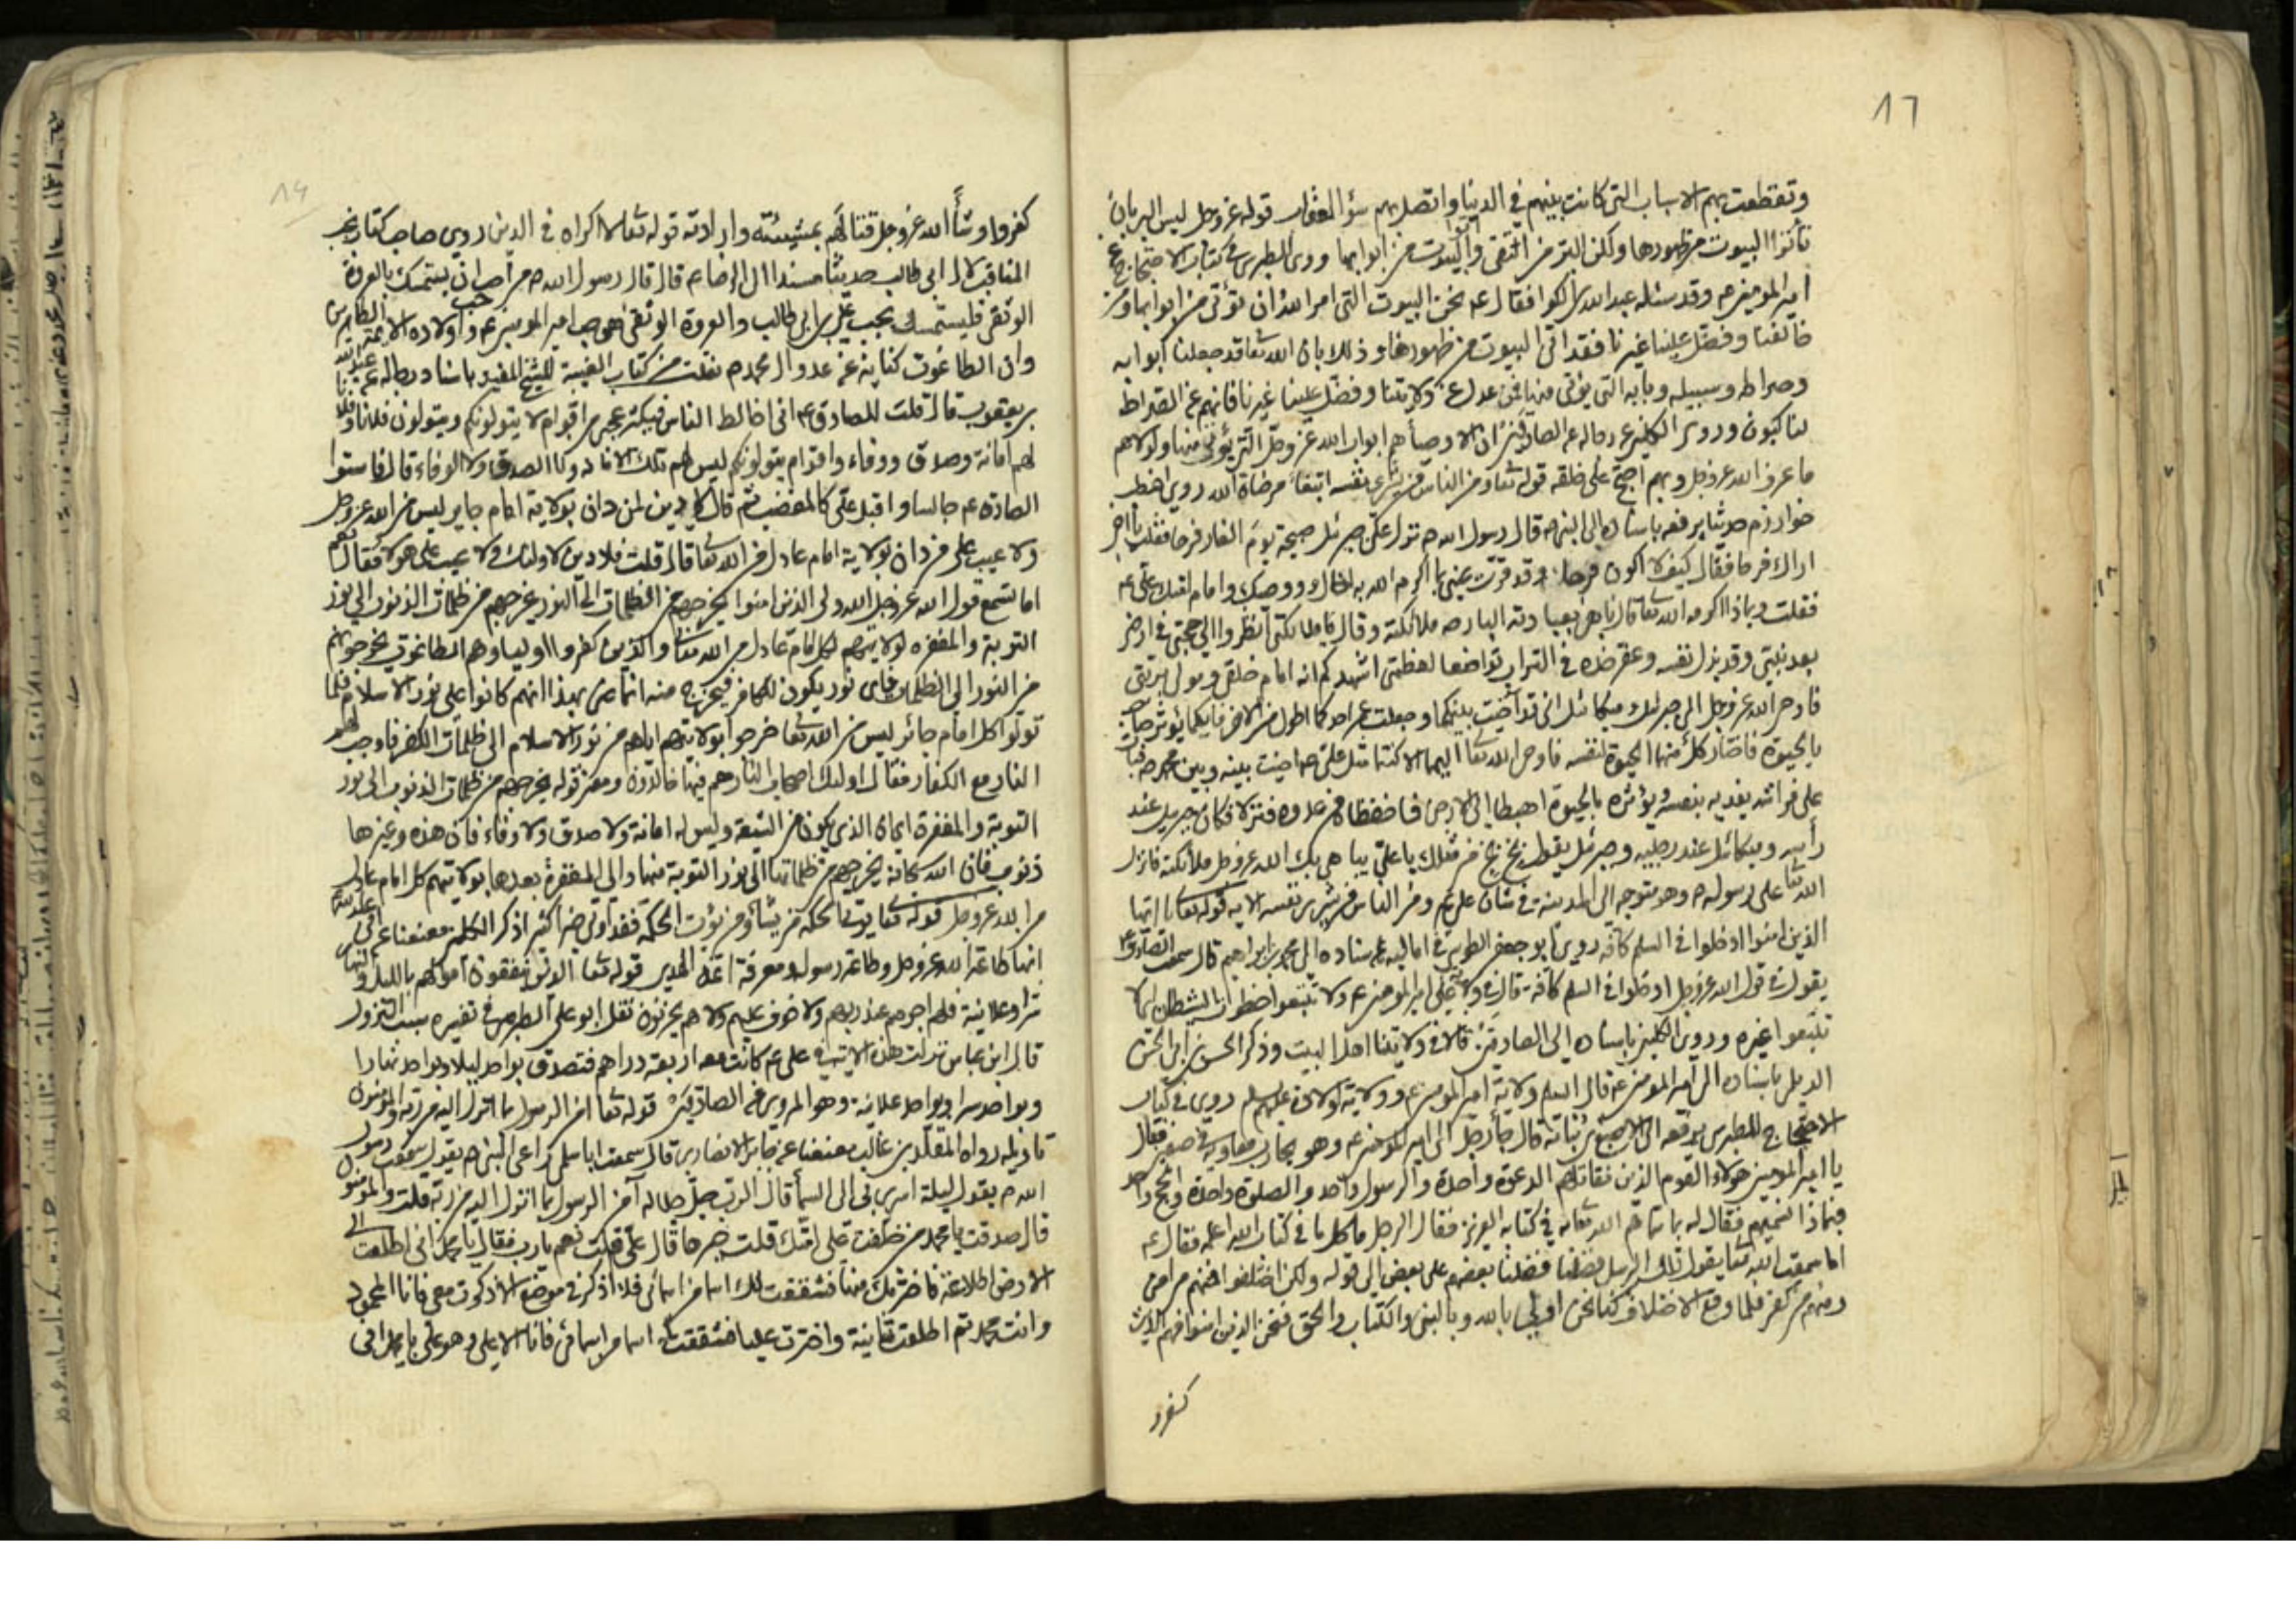 17
وتقطعت بهم الاسباب التي كانت بينهم في الدنيا واتصل بهم سؤ المغفار قوله عز وجل ليس البر بان
تأتوا البيوت من ظهورها ولكن البر من اتقى وأتوا البيوت من ابوابها روى الطبرسي في كتاب الاحتجاج عن
امير المومنين ع م وقد سئله عبد الله بن الكوا فقال ع م نحن البيوت التي امر الله ان تؤتى من ابوابها ومن
خالفنا وفضل علينا غيرنا فقد اتى البيوت من ظهورها وذلك بان الله تعا قد جعلنا ابوابه
وصراطه وسبيله وبابه التي يؤتى منها فمن عدل عن ولايتنا وفضل علينا غيرنا فانهم عن الصراط
لناكبون وروى الكليني عن رجاله عن الصادق ان الاوصيأ هم ابواب الله عز وجل التي يؤتى منها ولولاهم
ما عرف الله عز وجل وبهم احتج على خلقه قوله تعا ومن الناس من يشرى نفسه ابتغأ مرضاة الله روى اخطب
خوارزم حديثا يرفعه باسناده الى النبي ص قال رسول الله ص نزل على جبرئيل صبيحة يوم الغار فرحا فقلت يا اخى
اراك فرحا فقال كيف لا اكون فرحا وقد قرت عينى بما اكرم الله به اخاك ووصيك وامام امتك علي ع م
فقلت وبماذا اكرمه الله تعا قال باهى بعبادته البارحه ملائكته وقال يا ملائكتى انظروا الى حجتى فى ارضى
بعد نبيتى وقد بذل نفسه وعفر خده فى التراب تواضعا لعظمتى اشهدكم انه امام خلقى ومولى بريتى
فاوحى الله عز وجل الى جبرئيل وميكائيل انى قد آخيت بينكما وجعلت عمر احدكما اطول من الاخر فايكما يؤثر صاحبه
بالحيوة فاختار كل منهما الحيوة لنفسه فاوحى الله تعا اليهما الا كنتما مثل علي ع م اخيت بينه وبين محمد ص فبات
على فراشه يفديه بنفسه ويؤثره بالحيوة اهبطا الى الارض فاحفظاه من عدوه فنزلا فكان جبريل عند
رأسه وميكائيل عند رجليه وجبرئيل يقول بخ بخ من مثلك يا علي يباهى بك الله عز وجل ملائكته فانزل
الله تعا على رسوله ص وهو متوجه الى المدينة فى شان علي ع م ومن الناس من يشرى نفسه الايه قوله تعالى يا ايها
الذين امنوا ادخلوا فى السلم كافه روى ابو جعفر الطوسى فى اماليه عن اسناده الى محمد بن ابراهيم قال سمعت الصادق ع م
يقول فى قول الله عز وجل ادخلوا فى السلم كافة قال فى ولاية علي امير المومنين ع م ولا تتبعوا خطوات الشيطان اى لا
تتبعوا غيره وروى الكليني باسناده الى الصادق قال فى ولايتنا اهل البيت وذكر الحسن بن ابى الحسن
الديلمى باسناده الى امير المومنين ع م قال السلم ولاية امير المومنين ع م وولاية اولاده عليهم السلم روى فى كتاب
الاحتجاج للطبرسى يرفعه الى الاصبغ بن نباتة قال جأ رجل الى امير المومنين ع م وهو يحارب معاوية فى صفين فقال
يا امير المومنين هؤلاء القوم الذين نقاتلهم الدعوة واحدة والرسول واحد والصلوة واحدة والحج واحد
فبماذا نسميهم فقال له بما سماهم الله تعا به فى كتابه العزيز فقال الرجل ما كل ما فى كتاب الله اعلمه فقال ع م
اما سمعت الله تعا يقول تلك الرسل فضلنا بعضهم على بعض الى قوله ولكن اختلفوا فمنهم من امن
ومنهم من كفر فلما وقع الاختلاف كنا نحن اولى بالله وبالنبى والكتاب والحق فنحن الذين امنوا فهم الذين
كفروا
كفروا وشأ الله عز وجل قتالهم بمشيئته وارادته قوله تعا لا اكراه فى الدين روى صاحب كتاب نخب
المناقب لال ابى طالب حديثا مسندا الى الرضا ع م قال قال رسول الله ص من احب ان يستمسك بالعروة
الوثقى فليستمسك بحب علي بن ابى طالب والعروة الوثقى هى حب امير المومنين ع م وحب اولاده الائمة الطاهرين
وان الطاغوت كناية عن عدو ال محمد ص نقلت من كتاب الغيبة للشيخ المفيد باسناد رجاله عن عبد الله
بن يعقوب قال قلت للصادق ع م انى اخالط الناس فيكثر عجبى من اقوام لا يتولونكم ويتولون فلانا وفلانا
لهم امانة وصدق ووفاء واقوام يتولونكم ليس لهم تلك الامانه ولا الصدق ولا الوفاء قال فاستوا
الصادق ع م جالسا واقبل علي كالمغضب ثم قال لا دين لمن دان بولاية امام جاير ليس من الله عز وجل
ولا عيب على من دان بولاية امام عادل من الله تعا قال قلت فلا دين لاولئك ولا عيب على هولا فقال نعم
اما تسمع قول الله عز وجل الله ولى الذين امنوا يخرجهم من الظلمات الى النور يخرجهم من ظلمات الذنوب الى نور
التوبة والمغفره لولايتهم كل امام عادل من الله تعا والذين كفروا اولياوهم الطاغوت يخرجونهم
من النور الى الظلمات فاى نور يكون للكافر فيخرج منه انما عنى بهذا انهم كانوا على نور الاسلام فلما
تولوا كل امام جائر ليس من الله تعا خرجوا بولايتهم اياهم من نور الاسلام الى ظلمات الكفر فاوجب لهم
النار مع الكفار فقال اولئك اصحاب النار هم فيها خالدون ومعنى قوله يخرجهم من ظلمات الذنوب الى نور
التوبة والمغفرة ايمان الذى يكون من الشيعة وليس له امانة ولا صدق ولا وفاء فان هذه وغيرها
ذنوب فان الله سبحانه يخرجهم من ظلماتها الى نور التوبة منها والى المغفرة بعدها بولايتهم كل امام عادل
من الله عز وجل قوله تعا يوتى الحكمة من يشأ ومن يؤت الحكمة فقد اوتى خيرا كثيرا ذكر الكليني معنعنا عن ابى عبد الله ع م
انها طاعة الله عز وجل وطاعة رسوله ومعرفة ائمة الهدى قوله تعا الذين ينفقون اموالهم بالليل والنهار
سرا وعلانية فلهم اجرهم عند ربهم ولا خوف عليهم ولا هم يحزنون نقل ابو على الطبرسى فى تفسيره سبب النزول
قال ابن عباس نزلت هذه الاية فى علي ع م كانت معه اربعة دراهم فتصدق بواحد ليلا وبواحد نهارا
وبواحد سرا وبواحد علانية وهو المروى عن الصادقين قوله تعا امن الرسول بما انزل اليه من ربه والمومنون
تاويله رواه المقلد بن غالب معنعنا عن جابر الانصارى قال سمعت ابا سلمى راعى النبى ص يقول سمعت رسول
الله ص يقول ليلة اسرى بى الى السمأ قال الرب جل جلاله آمن الرسول بما انزل اليه من ربه قلت والمومنون
قال صدقت يا محمد من خلفت على امتك قلت خيرها قال علي قلت نعم يارب فقال يا محمد انى اطلعت الى
الارض اطلاعة فاخترتك منها فشققت لك اسما من اسمائى فلا اذكر فى موضع الا ذكرت معى فانا المحمود
وانت محمد ثم اطلعت ثانية واخترت عليا فشققت له اسما من اسمائى فانا الاعلى وهو علي يا محمد انى